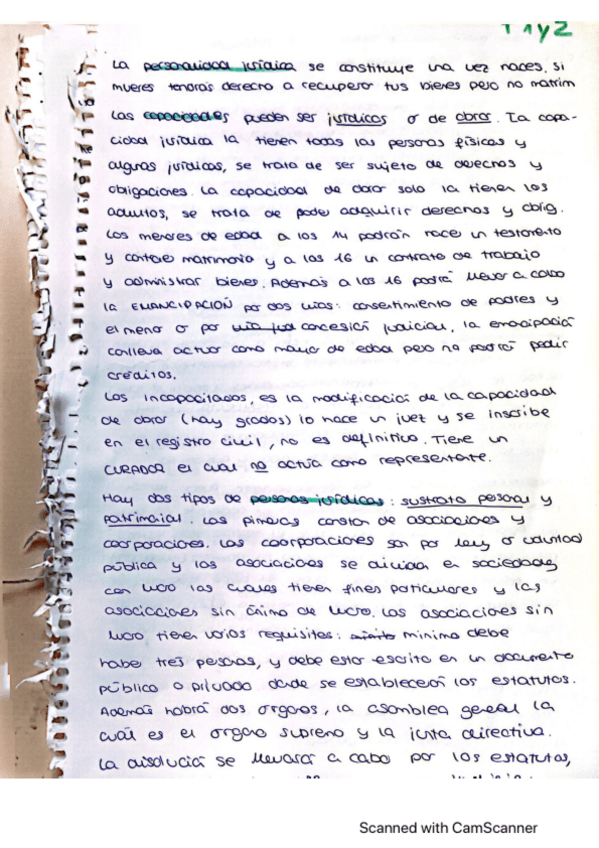 T 1 y 2
La personalidad jurídica se constituye una vez naces, si
mueres tendrás derecho a recuperar tus bienes pero no matrim
Las capacidades pueden ser jurídicas o de obrar. La capa-
cidad jurídica la tienen todas las personas físicas y
algunas jurídicas, se trata de ser sujeto de derechos y
obligaciones. La capacidad de obrar solo la tienen los
adultos, se trata de poder adquirir derechos y oblig.
Los menores de edad a los 14 podrán hacer un testamento
y contraer matrimonio y a los 16 un contrato de trabajo
y administrar bienes. Además a los 16 podrá llevar a cabo
la EMANCIPACIÓN por dos vías: consentimiento de padres y
el menor o por concesión judicial, la emancipación
conlleva actuar como mayor de edad pero no podrá pedir
créditos.
Los incapacitados, es la modificación de la capacidad
de obrar (hay grados) lo hace un juez y se inscribe
en el registro civil, no es definitivo. Tiene un
CURADOR el cual no actúa como representante.
Hay dos tipos de personas jurídicas: sustrato personal y
patrimonial. Las primeras constan de asociaciones y
corporaciones. Las corporaciones son por ley o voluntad
pública y las asociaciones se dividen en sociedades
con lucro las cuales tienen fines particulares y las
asociaciones sin ánimo de lucro. Las asociaciones sin
lucro tienen varios requisitos: mínimo debe
haber tres personas, y debe estar escrito en un documento
público o privado donde se establecerán los estatutos.
Además habrá dos órganos, la asamblea general la
cuál es el órgano supremo y la junta directiva.
La disolución se llevará a cabo por los estatutos,
Scanned with CamScanner